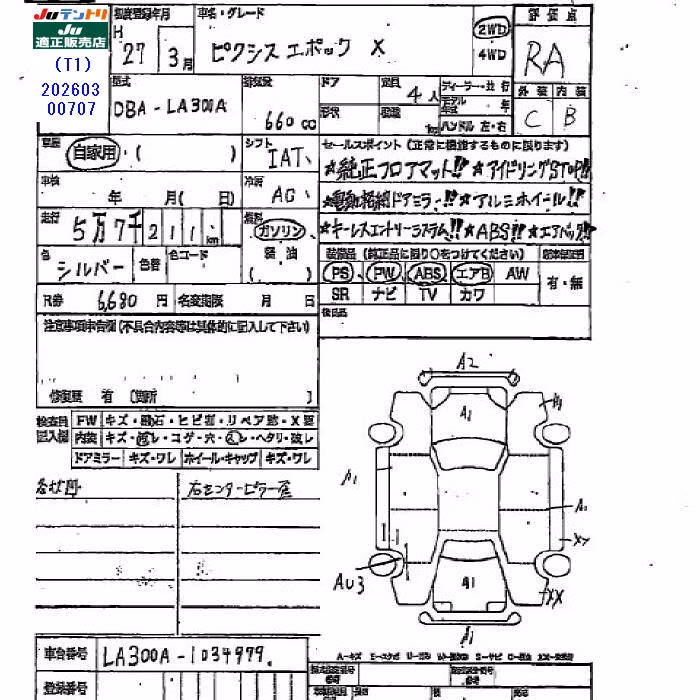 Juテントリ
Ju
適正販売店
(T1)
202603
00707
初度登録年月
H 27 3月
車名・グレード
ピクシスエポック X
2WD
4WD
評価点
RA
型式
DBA-LA300A
排気量
660cc
ドア
形状
定員
4人
ディーラー・並行
モデル 年
ハンドル 左・右
外装 内装
C B
自家用・( )
シフト
IAT
セールスポイント (正常に機能するものに限ります)
★純正フロアマット!! ★アイドリングSTOP!!
車検
年 月( 日)
冷房
AC
★電動格納ドアミラー!! ★アルミホイール!!
走行
5万7千211km
燃料
ガソリン
軽油
( )
★キーレスエントリーシステム!! ★ABS!! ★エアバッグ!!
色
シルバー
色替
色コード
装備品 (純正品に限り○をつけてください)
PS PW ABS エアB AW
SR ナビ TV カワ
有・無
R券 6,680円
名変期限 月 日
後日品
注意事項申告欄 (不具合内容等は具体的に記入して下さい)
修復歴 有 (箇所 )
検査員
記入欄
FW キズ・飛石・ヒビ割・リペア跡・X要
内装 キズ・汚レ・コゲ・穴・スレ・ヘタリ・破レ
ドアミラー キズ・ワレ ホイール・キャップ キズ・ワレ
右センターピラー歪
A2
A1
A1
A1
XX
AU3
A1
XX
A1
車台番号
LA300A-1034979
登録番号